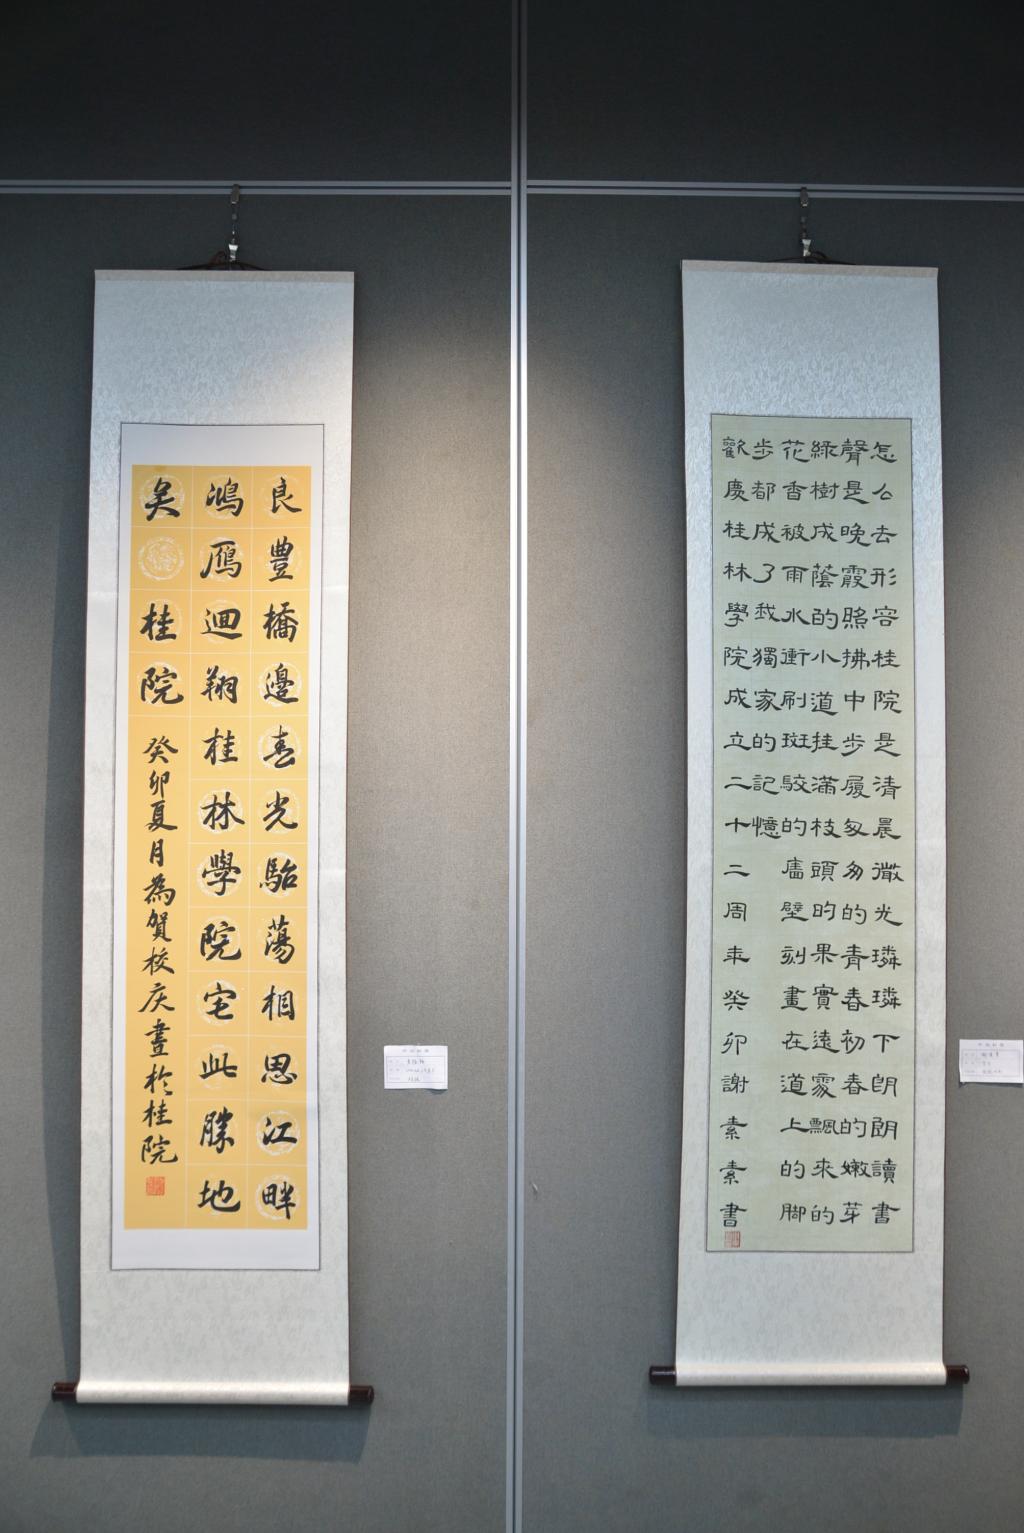 良豐橋邊春光駘蕩相思江畔
鴻鴈迴翔桂林學院宅此勝地
美桂院
癸卯夏月為賀校庆書於桂院
怎么去形容桂院是清晨微光璘璘下朗朗讀書
聲是晚霞照拂中步履匆匆的青春初春的嫩芽
綠樹成蔭的小道挂滿枝頭的果實遠處飄來的
花香被雨水衝刷斑駁的牆壁刻畫在道上的脚
步都成了我獨家的記憶
歡慶桂林學院成立二十二周年癸卯謝素素書